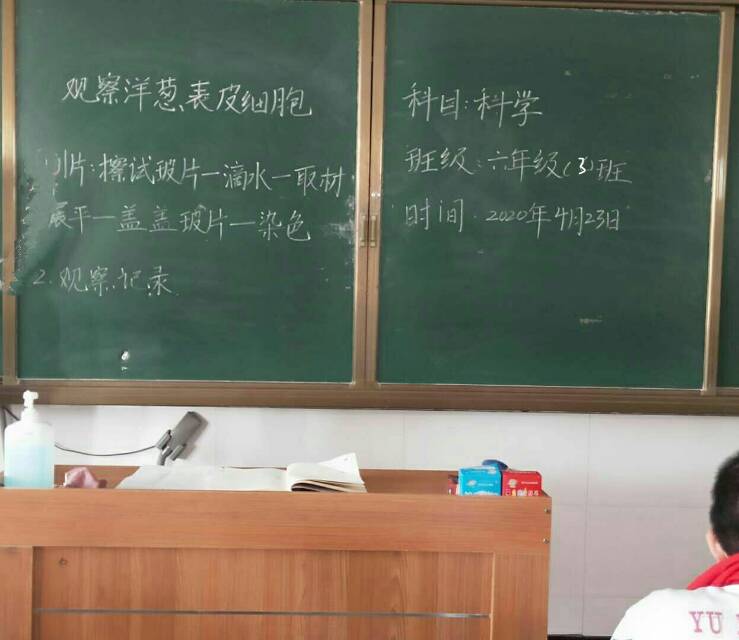 观察洋葱表皮细胞
片:擦试玻片一滴水一取材
展平一盖盖玻片一染色
2.观察记录
科目:科学
班级:六年级(3)班
时间 2020年4月23日
YU